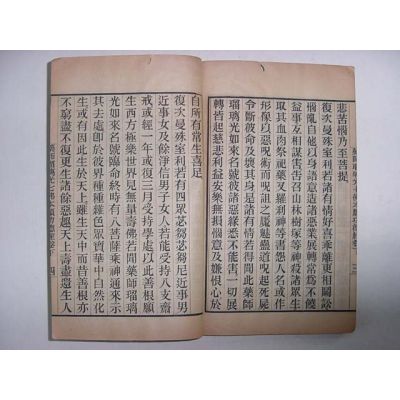 悲苦惱乃至菩提
復次曼殊室利若諸有情好喜乖離更相鬭訟
惱亂自他以身語意造諸惡業展轉常為不饒
益事互相謀害告召山林樹塚等神殺諸眾生
取其血肉祭祀藥叉羅剎神等書怨人名或作
形像以惡呪術而呪詛之厭魅蠱道呪起死屍
令斷彼命及壞其身是諸有情若得聞此藥師
瑠璃光如來名號彼諸惡緣悉不能害一切展
轉皆起慈心利益安樂無損惱意及嫌恨心於
自所有常生喜足
復次曼殊室利若有四眾苾芻苾芻尼近事男
近事女及餘淨信男子女人若能受持八支齋
戒或經一年或復三月受持學處以此善根願
生西方極樂世界見無量壽佛若聞藥師瑠璃
光如來名號臨命終時有八菩薩乘神通來示
其去處即於彼界種種雜色眾寶華中自然化
生或有因此生於天上雖生天中而昔善根亦
不窮盡不復更生諸餘惡趣天上壽盡還生人
四